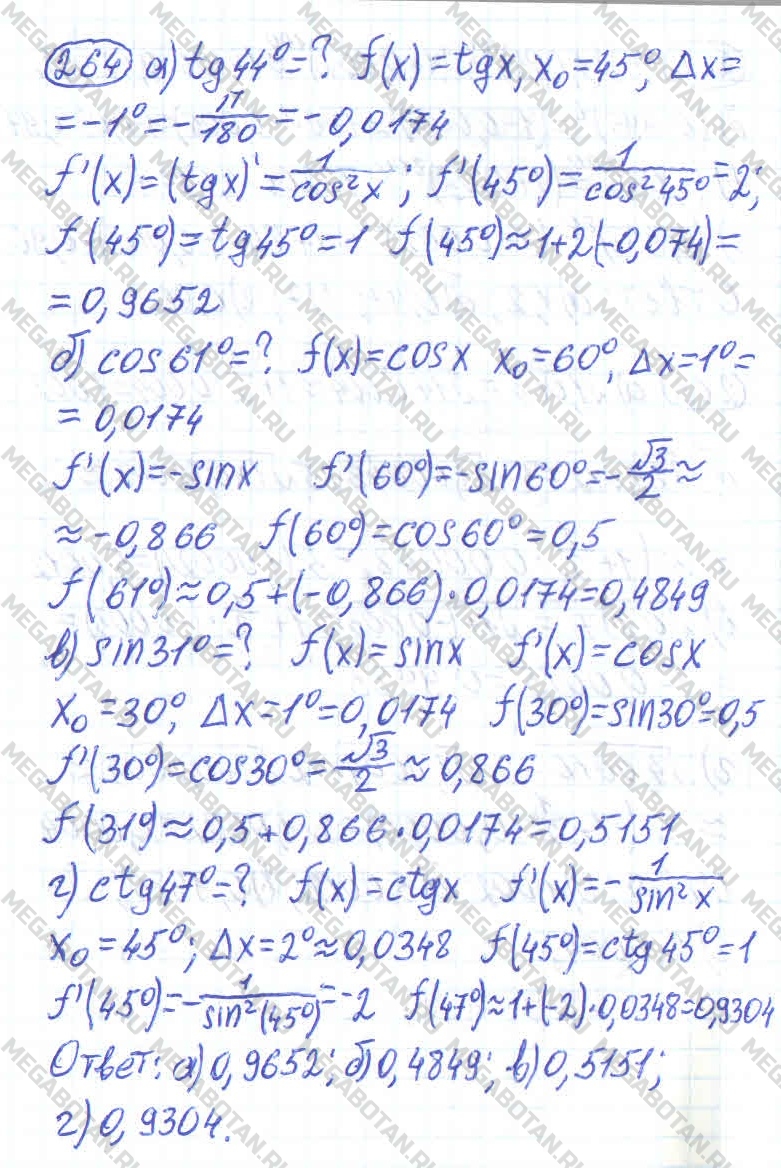 264 а) tg 44° = ? f(x) = tgx, x₀ = 45°, Δx =
= -1° = -π/180 = -0,0174
f'(x) = (tgx)' = 1/cos²x ; f'(45°) = 1/cos²45° = 2;
f(45°) = tg45° = 1 f(45°) ≈ 1+2(-0,074) =
= 0,9652
б) cos61° = ? f(x) = cosx x₀ = 60°, Δx = 1° =
= 0,0174
f'(x) = -sinx f'(60°) = -sin60° = -√3/2 ≈
≈ -0,866 f(60°) = cos60° = 0,5
f(61°) ≈ 0,5+(-0,866)·0,0174 = 0,4849
в) sin31° = ? f(x) = sinx f'(x) = cosx
x₀ = 30°, Δx = 1° = 0,0174 f(30°) = sin30° = 0,5
f'(30°) = cos30° = √3/2 ≈ 0,866
f(31°) ≈ 0,5+0,866·0,0174 = 0,5151
г) ctg47° = ? f(x) = ctgx f'(x) = -1/sin²x
x₀ = 45°; Δx = 2° ≈ 0,0348 f(45°) = ctg45° = 1
f'(45°) = -1/sin²(45°) = -2 f(47°) ≈ 1+(-2)·0,0348 = 0,9304
Ответ: а) 0,9652; б) 0,4849; в) 0,5151;
г) 0,9304.
MEGABOTAN.RU